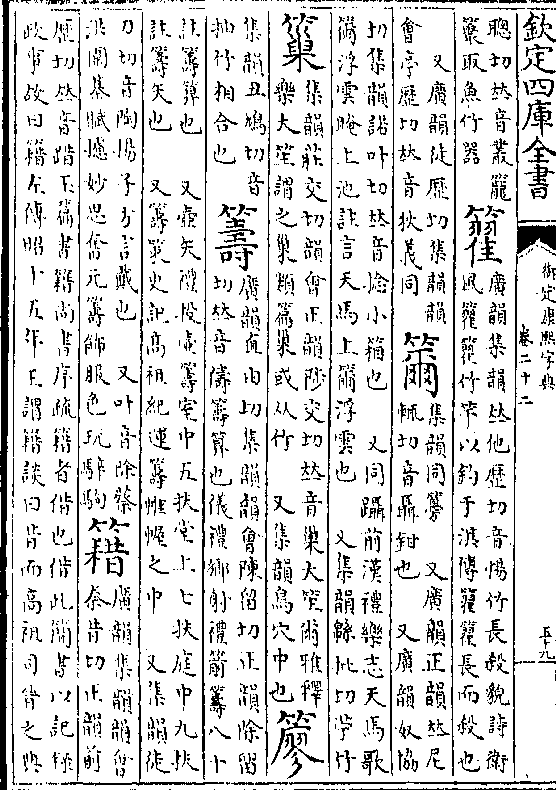 欽定四庫全書
御定康熙字典
卷二十二
五十九
聰切𠀤音叢籠
取魚竹器
籊
廣韻集韻𠀤他歷切音惕竹長殺貌詩衛
風籊籊竹竿以釣于淇傳籊籊長而殺也
又廣韻徒歷切集韻韻
會亭歷切𠀤音狄義同
籋
集韻同 又廣韻正韻𠀤尼
輒切音聶鉗也 又廣韻奴協
切集韻諾叶切𠀤音捻小箱也 又同躡前漢禮樂志天馬歌
籋浮雲晻上池註言天馬上籋浮雲也 又集韻緜批切 竹
集韻莊交切韻會正韻陟交切𠀤音巢大笙爾雅釋
樂大笙謂之巢類篇巢或从竹 又集韻鳥穴中也
集韻丑鳩切音
抽竹相合也
籌
廣韻直由切集韻韻會陳留切正韻除留
切𠀤音儔籌算也儀禮鄉射禮箭籌八十
註籌算也 又壺矢禮投壺籌室中五扶堂上七扶庭中九扶
註籌矢也 又籌策史記高祖紀運籌帷幄之中 又集韻徒
刀切音陶揚子方言戴也 又叶音除蔡
洪闕棊賦攄妙思奮元籌飾服色玩騂駒
籍
廣韻集韻韻會
秦昔切正韻前
歷切𠀤音踖玉篇書籍尚書序疏籍者借也借此簡書以記錄
政事故曰籍左傳昭十五年王謂籍談曰昔而高祖司晉之典